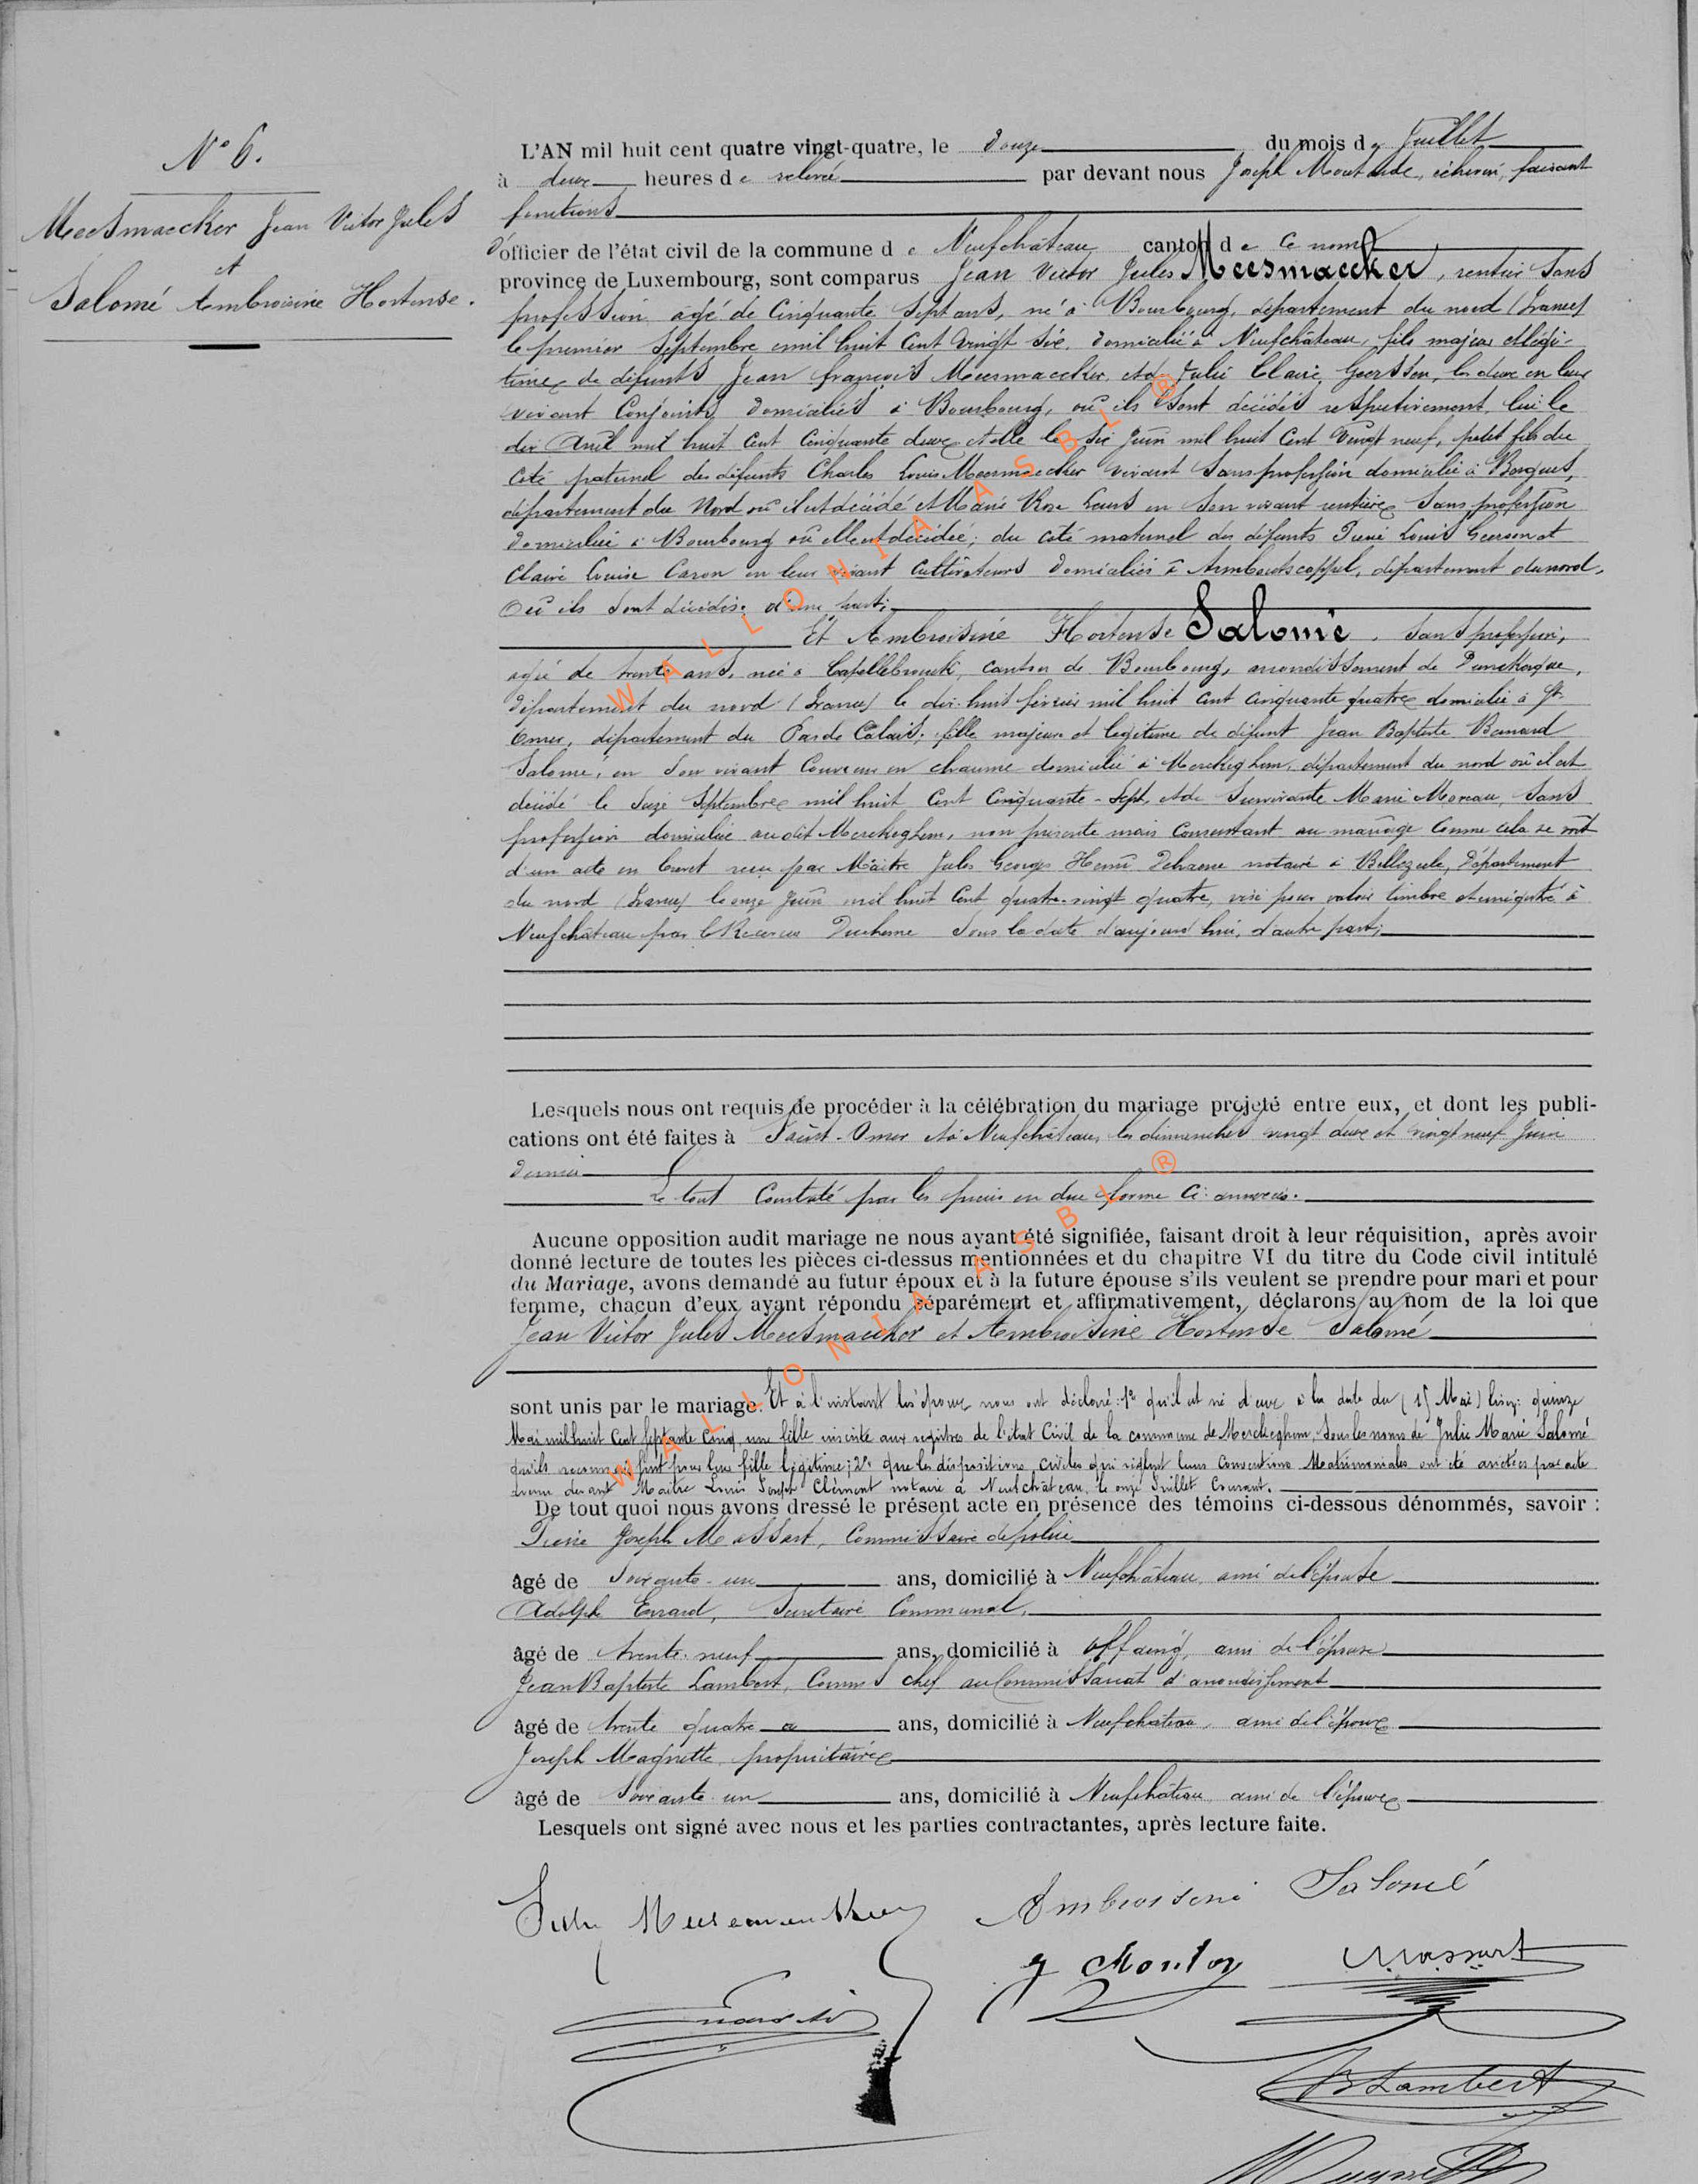 N° 6.
Meesmaecker Jean Victor Jules
et
Salomé Ambroisine Hortense.
L'AN mil huit cent quatre vingt-quatre, le douze du mois de Juillet
à deux heures de relevée par devant nous Joseph échevin, faisant
fonctions
d'officier de l'état civil de la commune de Neufchâteau canton de ce nom
province de Luxembourg, sont comparus Jean Victor Jules Meesmaecker, rentier sans
profession âgé de Cinquante sept ans, né à Bourbourg, département du nord (France)
le premier Septembre mil huit Cent vingt six, domicilié à Neufchâteau, fils majeur et légi-
time de défunts Jean françois Meesmaecker et de Julie Claire Goerssen, les deux en leur
vivant Conjoints domiciliés à Bourbourg, où ils sont décédés respectivement, lui le
dix Avril mil huit Cent Cinquante deux et elle le six Juin mil huit Cent Vingt neuf, petit fils du
Côté paternel des défunts Charles Louis Meesmaecker vivant Sans profession domicilié à Bergues,
département du Nord où il est décédé et Marie Rose en son vivant rentière Sans profession
domiciliée à Bourbourg où elle est décédée; du côté maternel des défunts Louis Geerssen et
Claire Louise Caron en leur vivant Cultivateurs domiciliés à Armboutscappel, département du nord,
Où ils sont décédés; d'une part;
Et Ambroisine Hortense Salomé, sans profession,
agée de trente ans, née à Capellebrouck, canton de Bourbourg, arrondissement de Dunckerque,
département du nord (France) le dix-huit février mil huit cent cinquante quatre domiciliée à St
Omer, département du Pas de Calais; fille majeure et légitime de défunt Jean Baptiste Bernard
Salomé, en son vivant Couvreur en chaume domicilié à Merckeghem, département du nord où il est
décédé le Seize Septembre mil huit Cent Cinquante-Sept, et de Survivante Marie Moreau, Sans
profession domiciliée audit Merckeghem, non présente mais Consentant au mariage Comme cela se voit
d'un acte en brevet reçu par Maître Jules Georges Henri notaire à Bollezeele, Département
du nord (France) le onze Juin mil huit Cent quatre-vingt quatre, visé pour valoir timbre et enregistré à
Neufchâteau par le Receveur Duchesne sous la date d'aujourd'hui, d'autre part;
Lesquels nous ont requis de procéder à la célébration du mariage projeté entre eux, et dont les publi-
cations ont été faites à Saint-Omer et à Neufchâteau, les dimanches vingt deux et vingt neuf Juin
dernier
Le tout Constaté par les pièces en due forme ci-annexées.
Aucune opposition audit mariage ne nous ayant été signifiée, faisant droit à leur réquisition, après avoir
donné lecture de toutes les pièces ci-dessus mentionnées et du chapitre VI du titre du Code civil intitulé
du Mariage, avons demandé au futur époux et à la future épouse s'ils veulent se prendre pour mari et pour
femme, chacun d'eux ayant répondu séparément et affirmativement, déclarons au nom de la loi que
Jean Victor Jules Meesmaecker et Ambroisine Hortense Salomé
sont unis par le mariage. Et à l'instant les époux nous ont déclaré: 1° qu'il est né d'eux à la date du (15 Mai) lisez: quinze
Mai mil huit Cent Septante Cinq une fille inscrite aux registres de l'état Civil de la commune de Merckeghem, Sous les noms de Julie Marie Salomé
qu'ils reconnaissent pour leur fille légitime; 2° que les dispositions civiles qui règlent leurs Conventions Matrimoniales ont été arrêtées par acte
devant Maître Louis Joseph Clément notaire à Neufchâteau, le onze Juillet Courant.
De tout quoi nous avons dressé le présent acte en présence des témoins ci-dessous dénommés, savoir :
Pierre Joseph Massart, Commissaire de police
âgé de Soixante-un ans, domicilié à Neufchâteau, ami de l'épouse
Adolphe Evrard, Secrétaire Communal,
âgé de trente-neuf ans, domicilié à Offaing, ami de l'épouse
Jean Baptiste Lambert, Commis chef au Commissariat d'arrondissement
âgé de trente quatre ans, domicilié à Neufchâteau, ami de l'époux
Joseph Magnette, propriétaire
âgé de Soixante-un ans, domicilié à Neufchâteau, ami de l'époux
Lesquels ont signé avec nous et les parties contractantes, après lecture faite.
Ambroisine Salomé
Massart
Lambert
WALLONIA ASBL ®
WALLONIA ASBL ®